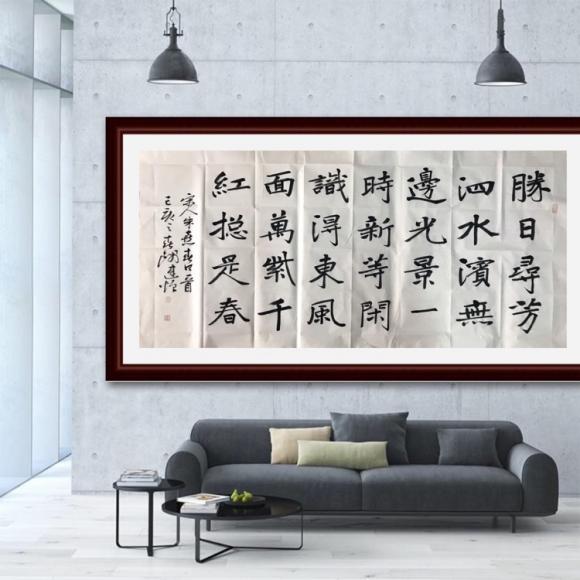 勝日尋芳
泗水濱無
邊光景一
時新等閑
識淂東風
面萬紫千
紅揔是春
宋人朱熹春日一首
己亥之春